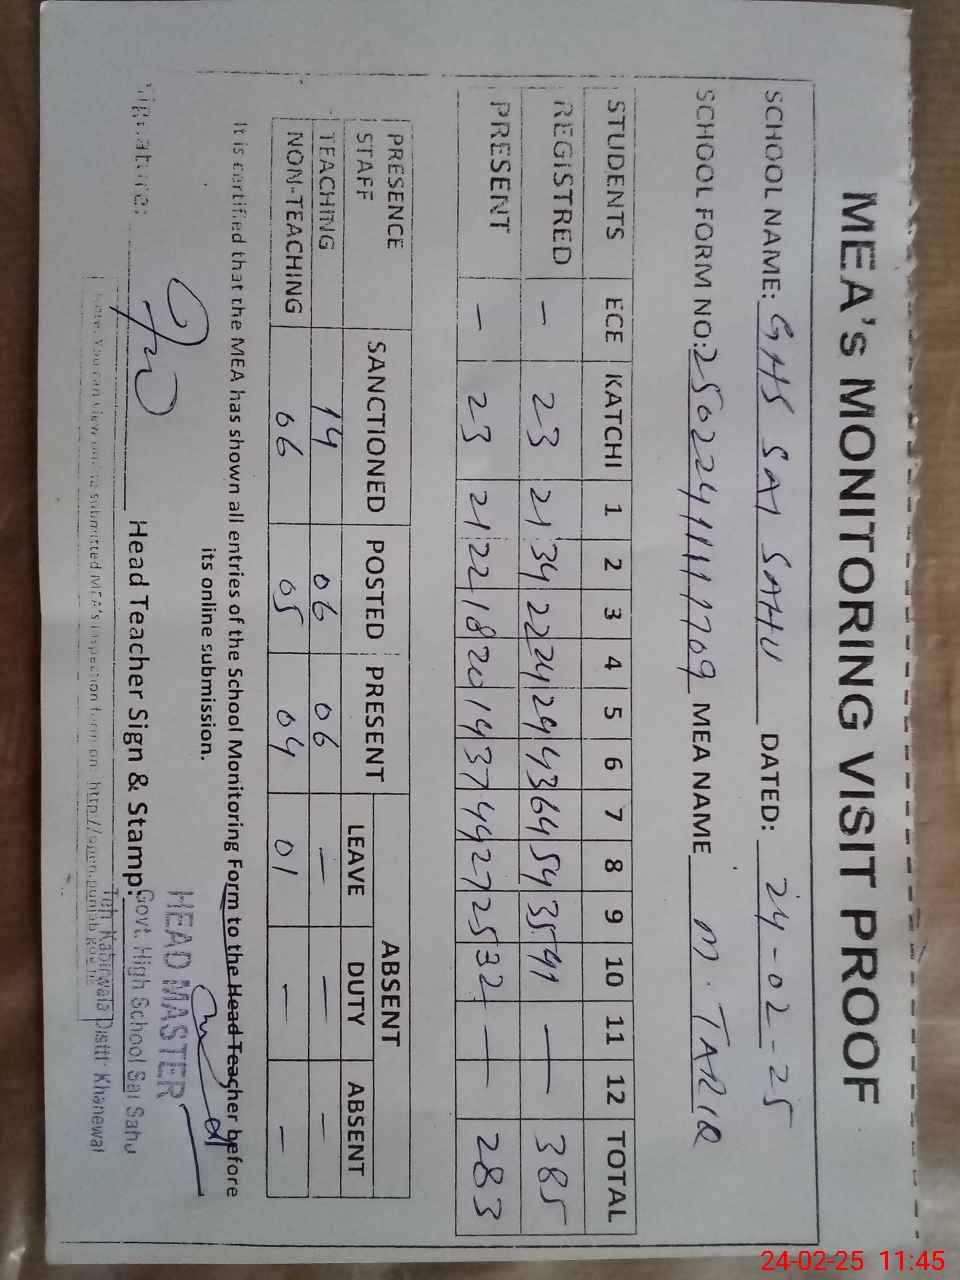 MEA's MONITORING VISIT PROOF
SCHOOL NAME: GHS SAI SAHU DATED: 24-02-25
SCHOOL FORM NO: 25022411111709 MEA NAME M. TARIQ
STUDENTS ECE KATCHI 1 2 3 4 5 6 7 8 9 10 11 12 TOTAL
REGISTRED - 23 21 34 22 24 24 43 64 54 35 41 — 385
PRESENT - 23 21 22 18 20 14 37 44 27 25 32 — 283
PRESENCE STAFF SANCTIONED POSTED PRESENT ABSENT
LEAVE DUTY ABSENT
TEACHING 14 06 06 - - -
NON-TEACHING 06 05 04 01 - -
It is certified that the MEA has shown all entries of the School Monitoring Form to the Head Teacher before
its online submission.
HEAD MASTER
Signature: Head Teacher Sign & Stamp:
Govt. High School Sai Sahu
Teh. Kabirwala Distt: Khanewal
Note: You can view online submitted MEA's inspection form on: http://open.punjab.gov.pk
24-02-25 11:45